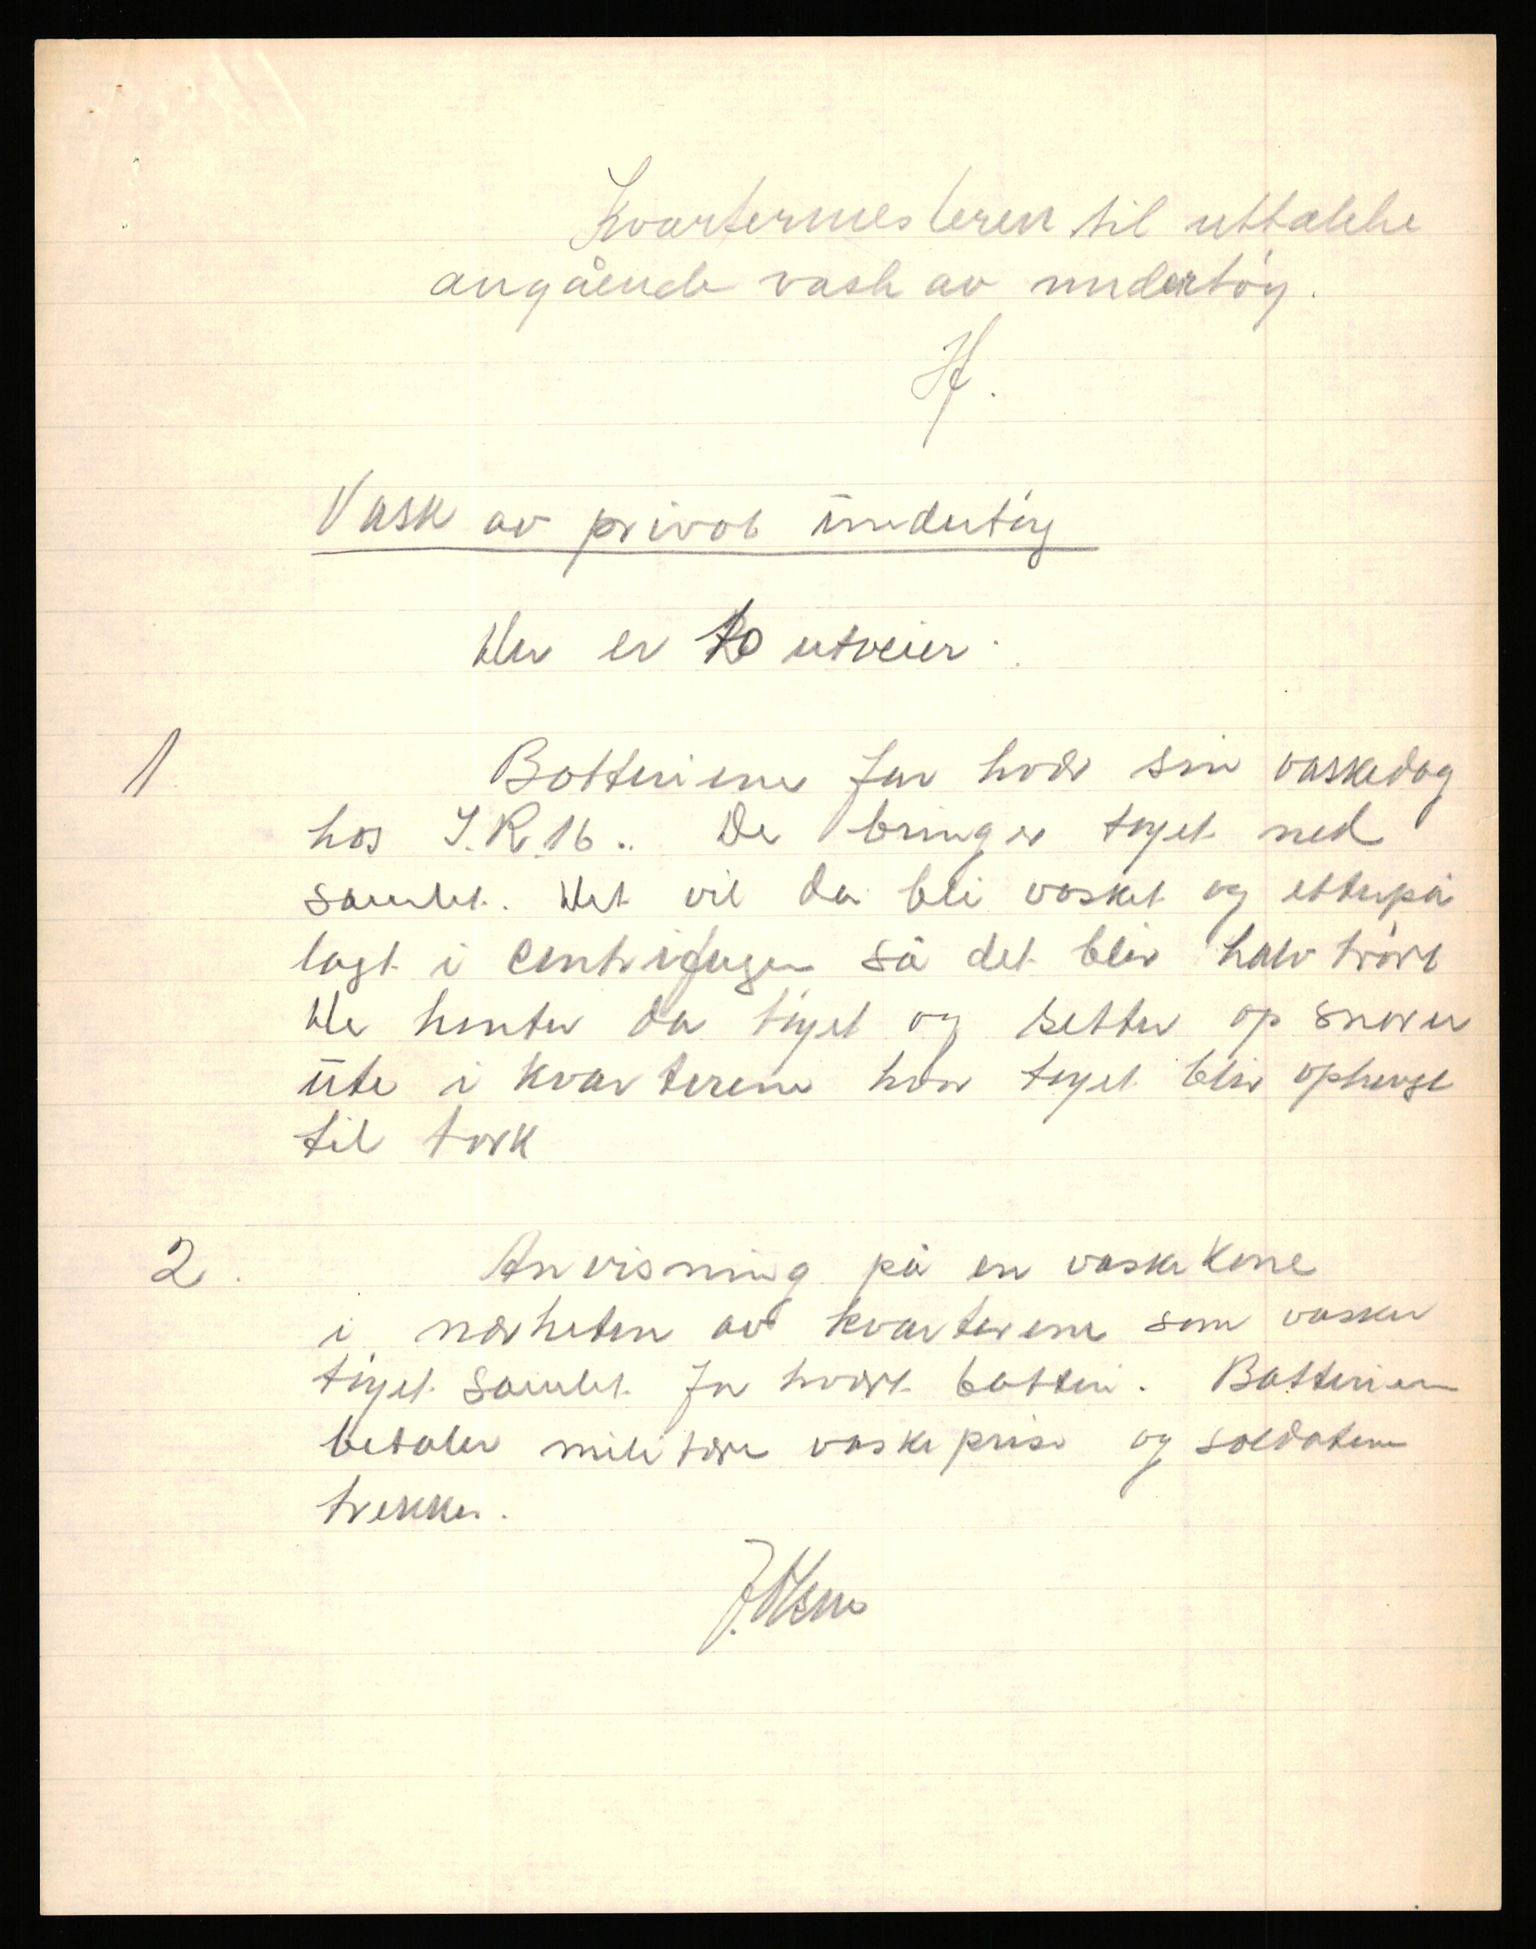 Kvartermesteren til uttalelse
angående vask av undertøy.
H.
Vask av privat undertøy
Der er to utveier.
1 Batteriene får hver sin vaskedag
hos I.R.16.. De bringer tøyet ned
samlet. Det vil da bli vasket og etterpå
lagt i centrifugen så det blir halv tørt
De henter da tøyet og setter op snorer
ute i kvarterene hvor tøyet blir ophengt
til tørk
2. Anvisning på en vaskekone
i nærheten av kvarterene som vasker
tøyet samlet for hvert batteri. Batteriene
betaler militære vaskepriser og soldatene
trekkes.
J. Olsen